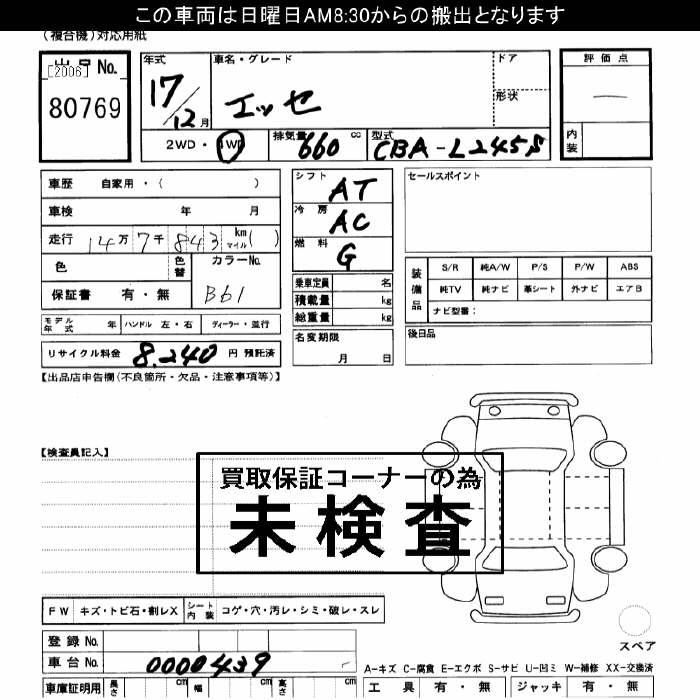 この車両は日曜日AM8:30からの搬出となります
(複合機)対応用紙
出品No.
[2006]
80769
年式
17/12月
車名・グレード
エッセ
ドア
形状
評価点
内装
2WD・4WD
排気量 660 cc
型式 CBA-L245S
車歴 自家用・( )
車検 年 月
走行 14万7千843 km マイル( )
色
色替
カラーNo.
B61
保証書 有・無
シフト AT
冷房 AC
燃料 G
乗車定員 名
積載量 kg
総重量 kg
名変期限
月 日
セールスポイント
装備品
S/R 純A/W P/S P/W ABS
純TV 純ナビ 革シート 外ナビ エアB
ナビ型番:
後日品
モデル年式 年 ハンドル 左・右 ディーラー・並行
リサイクル料金 8,240 円 預託済
【出品店申告欄(不良箇所・欠品・注意事項等)】
【検査員記入】
買取保証コーナーの為
未検査
FW キズ・トビ石・割レX シート内装 コゲ・穴・汚レ・シミ・破レ・スレ
登録No.
車台No. 0000439
スペア
A-キズ C-腐食 E-エクボ S-サビ U-凹ミ W-補修 XX-交換済
車庫証明用 長さ cm 幅 cm 高さ cm
工具 有・無 ジャッキ 有・無